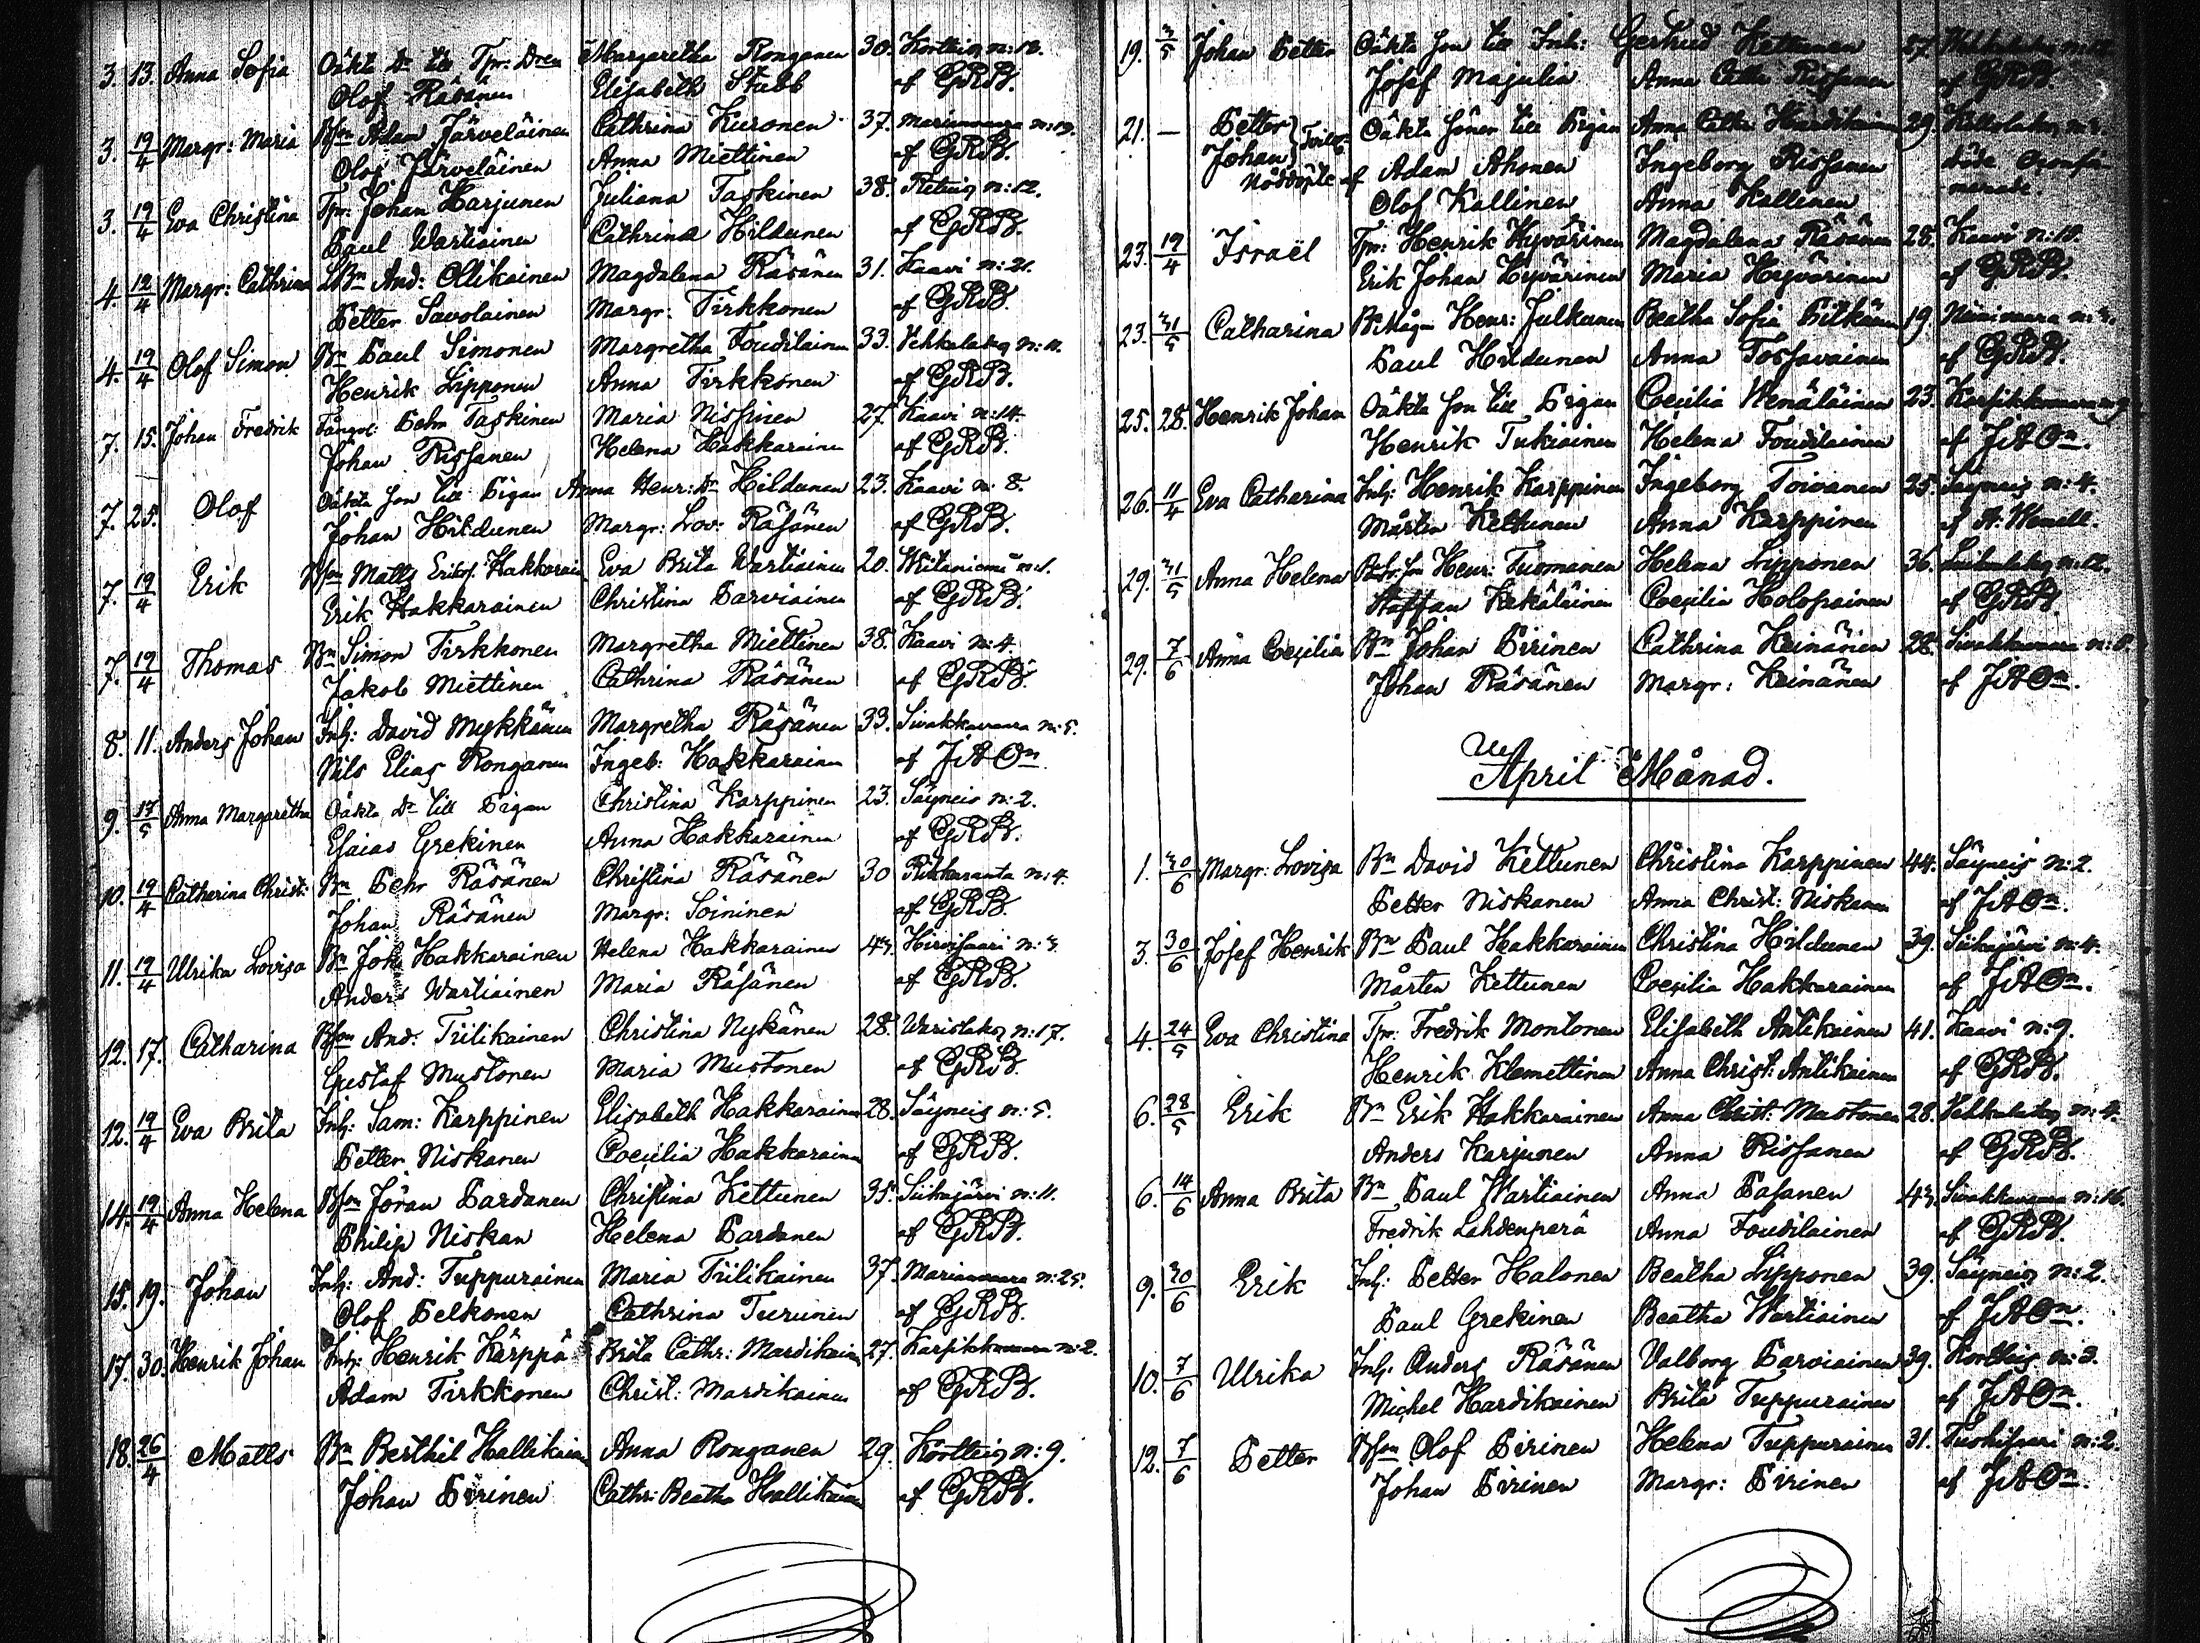 3. 13. Anna Sofia Oäkta Dr till Tpr: Dren Margaretha Ronganen 30. Kortteis n: 12.
Olof Räsänen Elisabeth Stubb af GRB.
3. 19/4 Margr: Maria Bson Adam Järveläinen Cathrina Kuronen 37. Marianvaara n: 19.
Olof Järveläinen Anna Miettinen af GRB.
3. 19/4 Eva Christina Tpr: Johan Harjunen Juliana Taskinen 38. n: 12.
Paul Wartiainen Cathrina Hildunen af GRB.
4. 12/4 Margr: Cathrina And: Ollikainen Magdalena Räsänen 31. Kaavi n: 21.
Petter Savolainen Margr: Tirkkonen af GRB.
4. 19/4 Olof Simon Bn Paul Simonen Margretha Toudilainen 33. Vehkalaks n: 11.
Henrik Lipponen Anna Tirkkonen af GRB.
7. 15. Johan Fredrik Pehr Taskinen Maria Nissinen 27. Kaavi n: 14.
Johan Rissanen Helena Hakkarainen af GRB.
7. 25. Olof Oäkta son till Pigan Anna Henr: Dr Hildunen 23. Kaavi n: 8.
Johan Hildunen Margr: Lov: Räsänen af GRB.
7. 19/4 Erik Bson Matts Eriks: Hakkarain Eva Brita Wartiainen 20. Niitaniemi n: 1.
Erik Hakkarainen Christina Parviainen af GRB.
7. 19/4 Thomas Bn Simon Tirkkonen Margretha Miettinen 38. Kaavi n: 4.
Jakob Miettinen Cathrina Räsänen af GRB.
8. 11. Anders Johan Inh: David Mykkänen Margretha Räsänen 33. Sivakkavaara n: 5.
Nils Elias Ronganen Ingeb: Hakkarainen af JAOn.
9. 17/5 Anna Margaretha Oäkta Dr till Pigan Christina Karppinen 23. Säyneis n: 2.
Esaias Grekinen Anna Hakkarainen af GRB.
10. 19/4 Catharina Christ: Bn Pehr Räsänen Christina Räsänen 30 Rikkaranta n: 4.
Johan Räsänen Margr: Soininen af GRB.
11. 19/4 Ulrika Lovisa Bn Joh Hakkarainen Helena Hakkarainen 43. Hirvisaari n: 3.
Anders Wartiainen Maria Räsänen af GRB.
12. 17. Catharina Bson And: Tiilikainen Christina Nykänen 28. Warislaks n: 17.
Gustaf Mustonen Maria Mustonen af GRB.
12. 19/4 Eva Brita Inh: Sam: Karppinen Elisabeth Hakkarainen 28. Säyneis n: 5.
Petter Niskanen Coecilia Hakkarainen af GRB.
14. 19/4 Anna Helena Bson Jöran Pardanen Christina Kettunen 35. Siikajärvi n: 11.
Philip Niskan Helena Pardanen af GRB.
15. 19. Johan Inh: And: Tuppurainen Maria Tiilikainen 37. Marianvaara n: 25.
Olof Pelkonen Cathrina Turunen af GRB.
17. 30. Henrik Johan Inh: Henrik Kärppä Brita Cathr: Mardikainen 27. Karsikkovaara n: 2.
Adam Tirkkonen Christ: Mardikainen af GRB.
18. 26/4 Matts Bn Berthil Hallikainen Anna Ronganen 29. Kortteis n: 9.
Johan Pirinen Cathr: Beatha Hallikainen af GRB.
19. 3/5 Johan Petter Oäkta son till Inh: Gertrud Kettunen 27
Josef Majulin Anna Cathr Rissanen af GRB.
21. — Petter Oäkta söner till Pigan Anna Cathr 29.
Johan } Tvill: af Adam Ahonen Ingeborg Rissanen döde
Nöddöpte Olof Kallinen Anna Kallinen
23. 19/4 Israël Tpr: Henrik Hyvärinen Magdalena Räsänen 28. Kaavi n: 18.
Erik Johan Hyvärinen Maria Hyvärinen af GRB.
23. 31/5 Catharina Henr: Julkunen Beatha Sofia Pitkänen 19. Niinivaara n: 3.
Paul Hildunen Anna Tossavainen af GRB.
25. 28. Henrik Johan Oäkta son till Pigan Coecilia Wenäläinen 23. Karsikkovaara n: 9
Henrik Tukiainen Helena Toudilainen af JAOn.
26. 11/4 Eva Catharina Inh: Henrik Karppinen Ingeborg Toivanen 25. Säyneis n: 4.
Mårten Kettunen Anna Karppinen af A: Wenell.
29. 31/5 Anna Helena Henr: Tuomainen Helena Lipponen 36. n: 12.
Staffan Kekäläinen Coecilia Holopainen af GRB.
29. 7/6 Anna Coecilia Bn Johan Pirinen Cathrina Keinänen 28. Sivakkavaara n: 8.
Johan Räsänen Margr: Keinänen af JAOn.
April Månad.
1. 30/6 Margr: Lovisa Bn David Kettunen Christina Karppinen 44. Säyneis n: 2.
Petter Niskanen Anna Christ: Niskanen af JAOn.
3. 30/6 Josef Henrik Bn Paul Hakkarainen Christina Hildunen 39. Siikajärvi n: 4.
Mårten Kettunen Coecilia Hakkarainen af JAOn.
4. 24/5 Eva Christina Tpr: Fredrik Montonen Elisabeth Antikainen 41. Kaavi n: 9.
Henrik Klemettinen Anna Christ: Antikainen af GRB.
6. 28/5 Erik Bn Erik Hakkarainen Anna Christ: Mustonen 28. Vehkalaks n: 4.
Anders Karjunen Anna Rissanen af GRB.
6. 14/6 Anna Brita Bn Paul Wartiainen Anna Pasanen 43. Sivakkavaara n: 16.
Fredrik Lahdenperä Anna Toudilainen af GRB.
9. 30/6 Erik Inh: Petter Halonen Beatha Lipponen 39. Säyneis n: 2.
Paul Grekinen Beatha Wartiainen af JAOn.
10. 7/6 Ulrika Inh: Anders Räsänen Valborg Parviainen 39. Kortteis n: 3.
Michel Hardikainen Brita Tuppurainen af JAOn.
12. 7/6 Petter Bson Olof Pirinen Helena Tuppurainen 31. Tuohisaari n: 2.
Johan Pirinen Margr: Pirinen af JAOn.